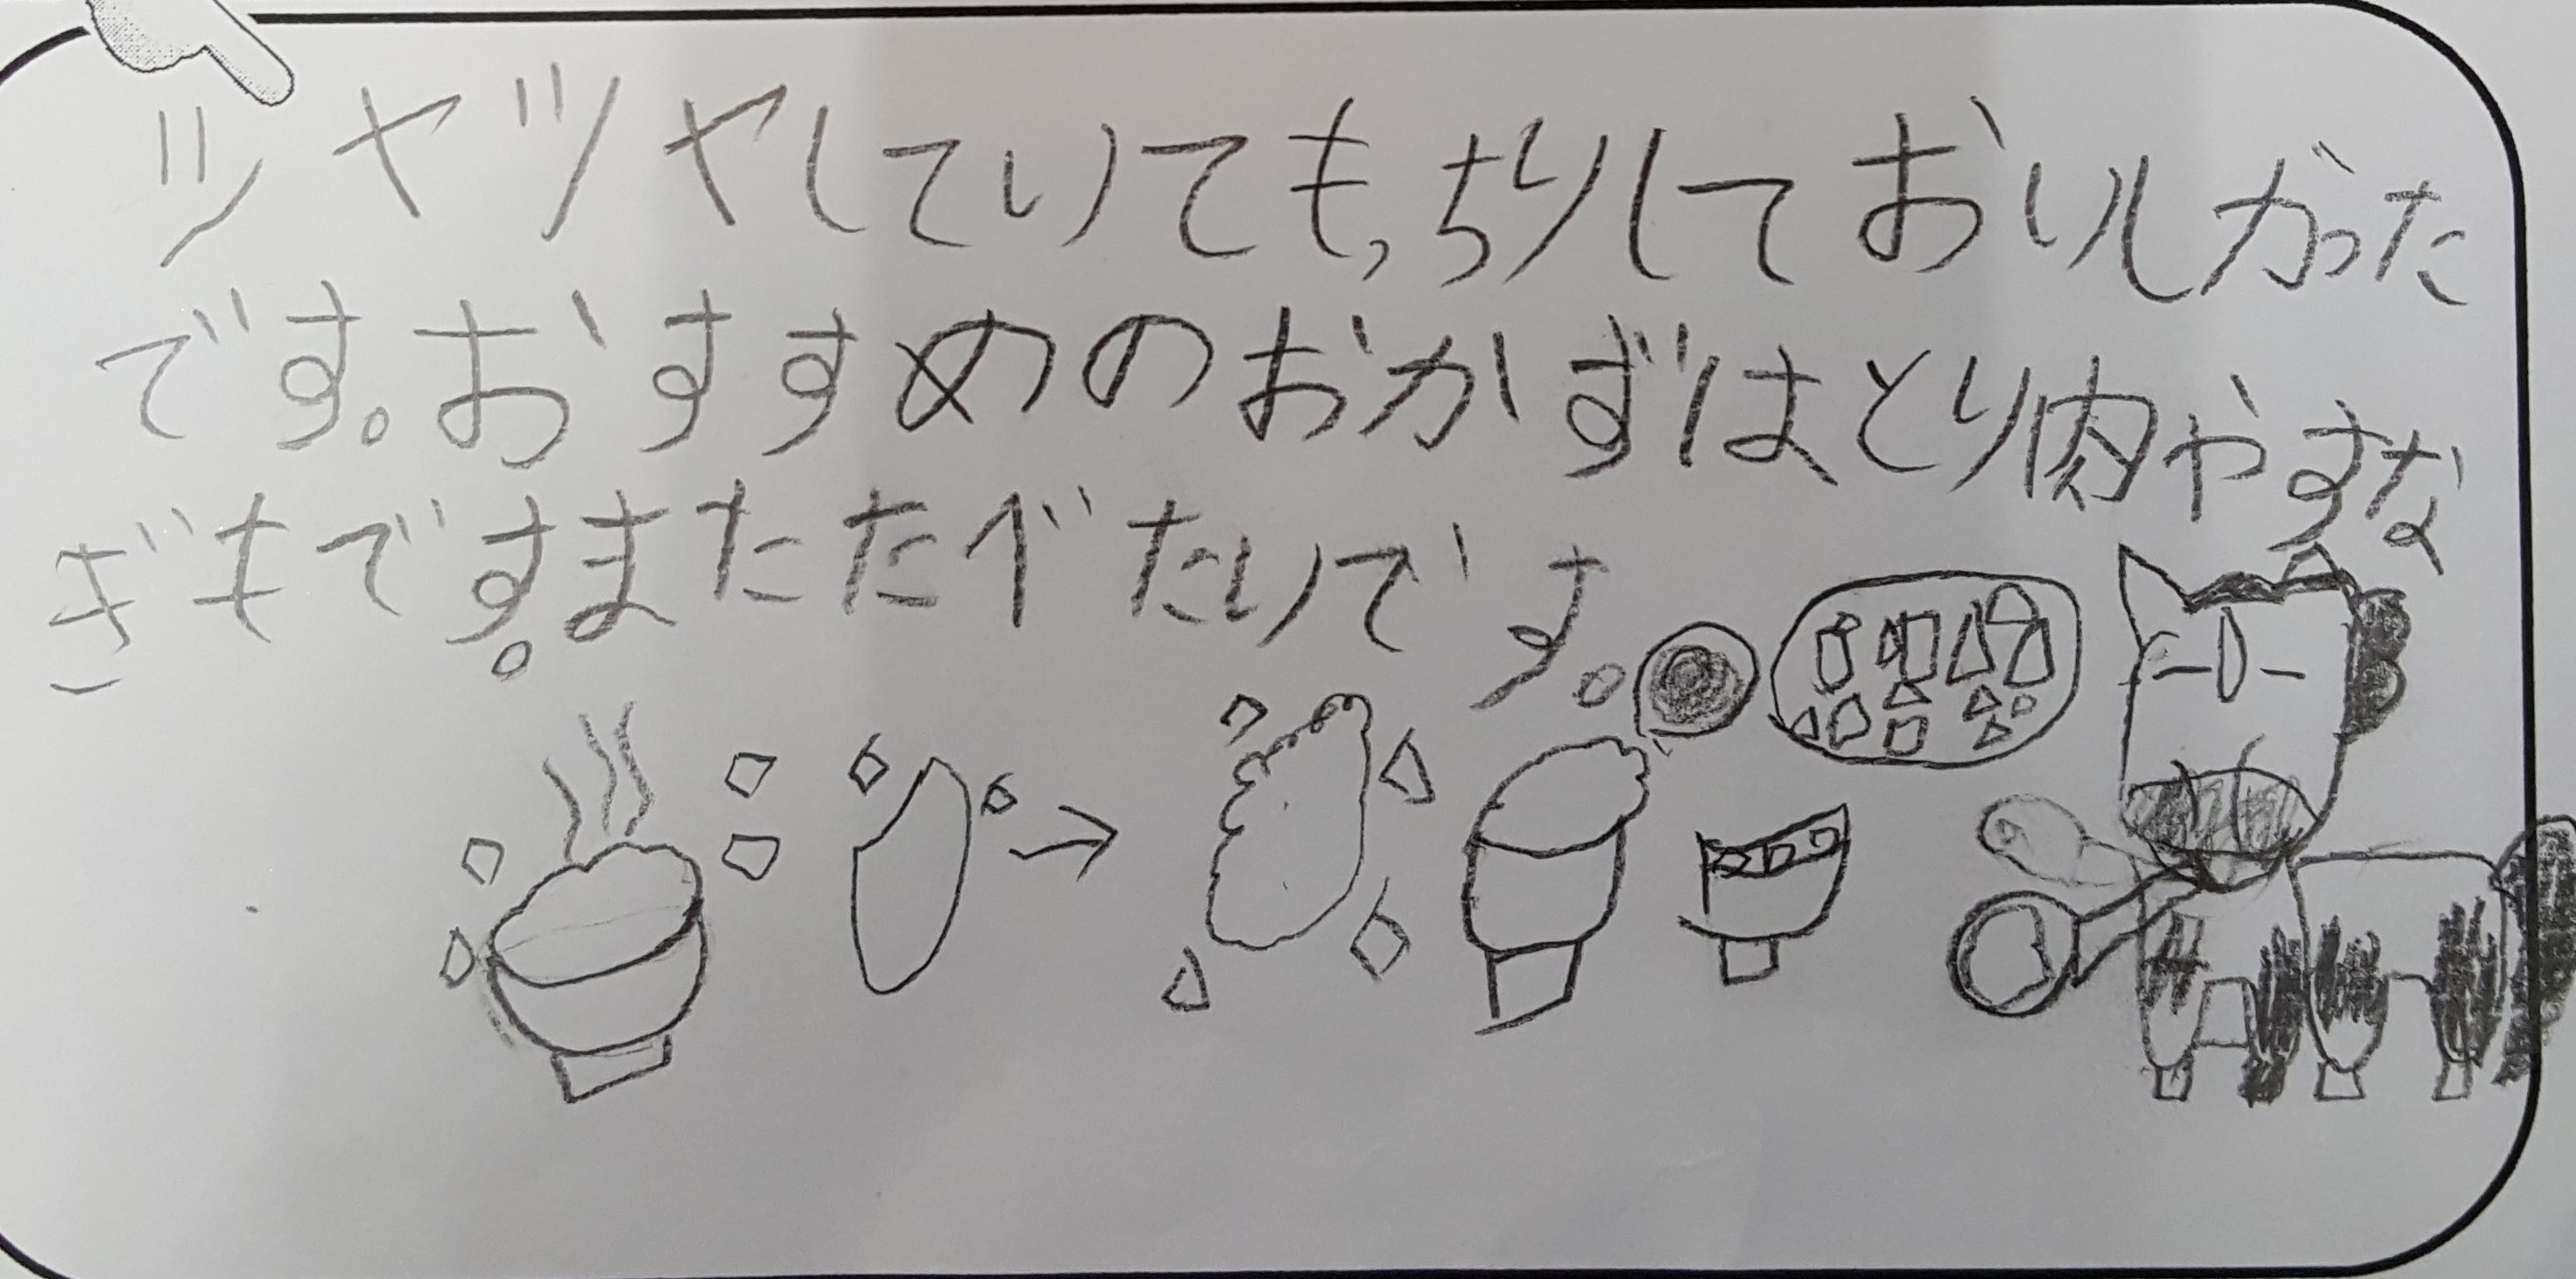 ツヤツヤしていてもっちりしておいしかった
です。おすすめのおかずはとり肉やすな
ぎもです。またたべたいです。